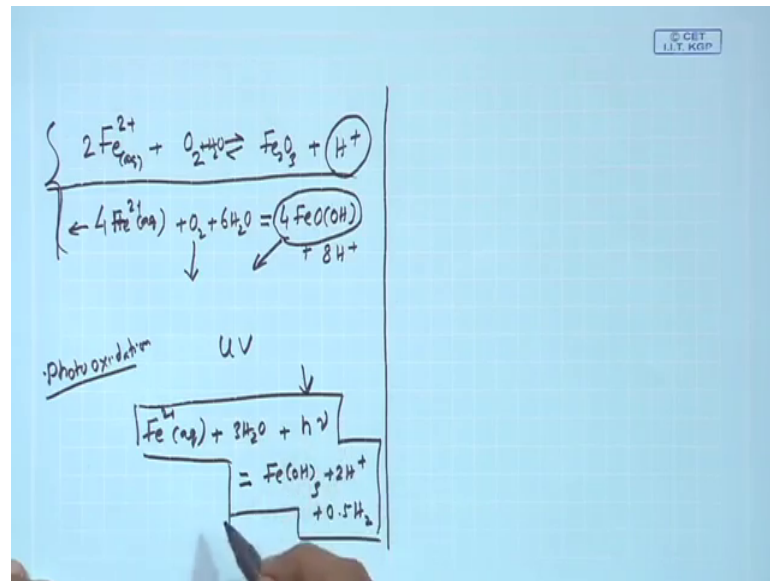 © CET
I.I.T. KGP
2Fe²⁺(aq) + O₂+H₂O ⇌ Fe₂O₃ + H⁺
← 4Fe²⁺(aq) + O₂ + 6H₂O = 4FeO(OH)
+ 8H⁺
Photooxidation
UV
Fe²⁺(aq) + 3H₂O + hν
= Fe(OH)₃ + 2H⁺
+ 0.5H₂